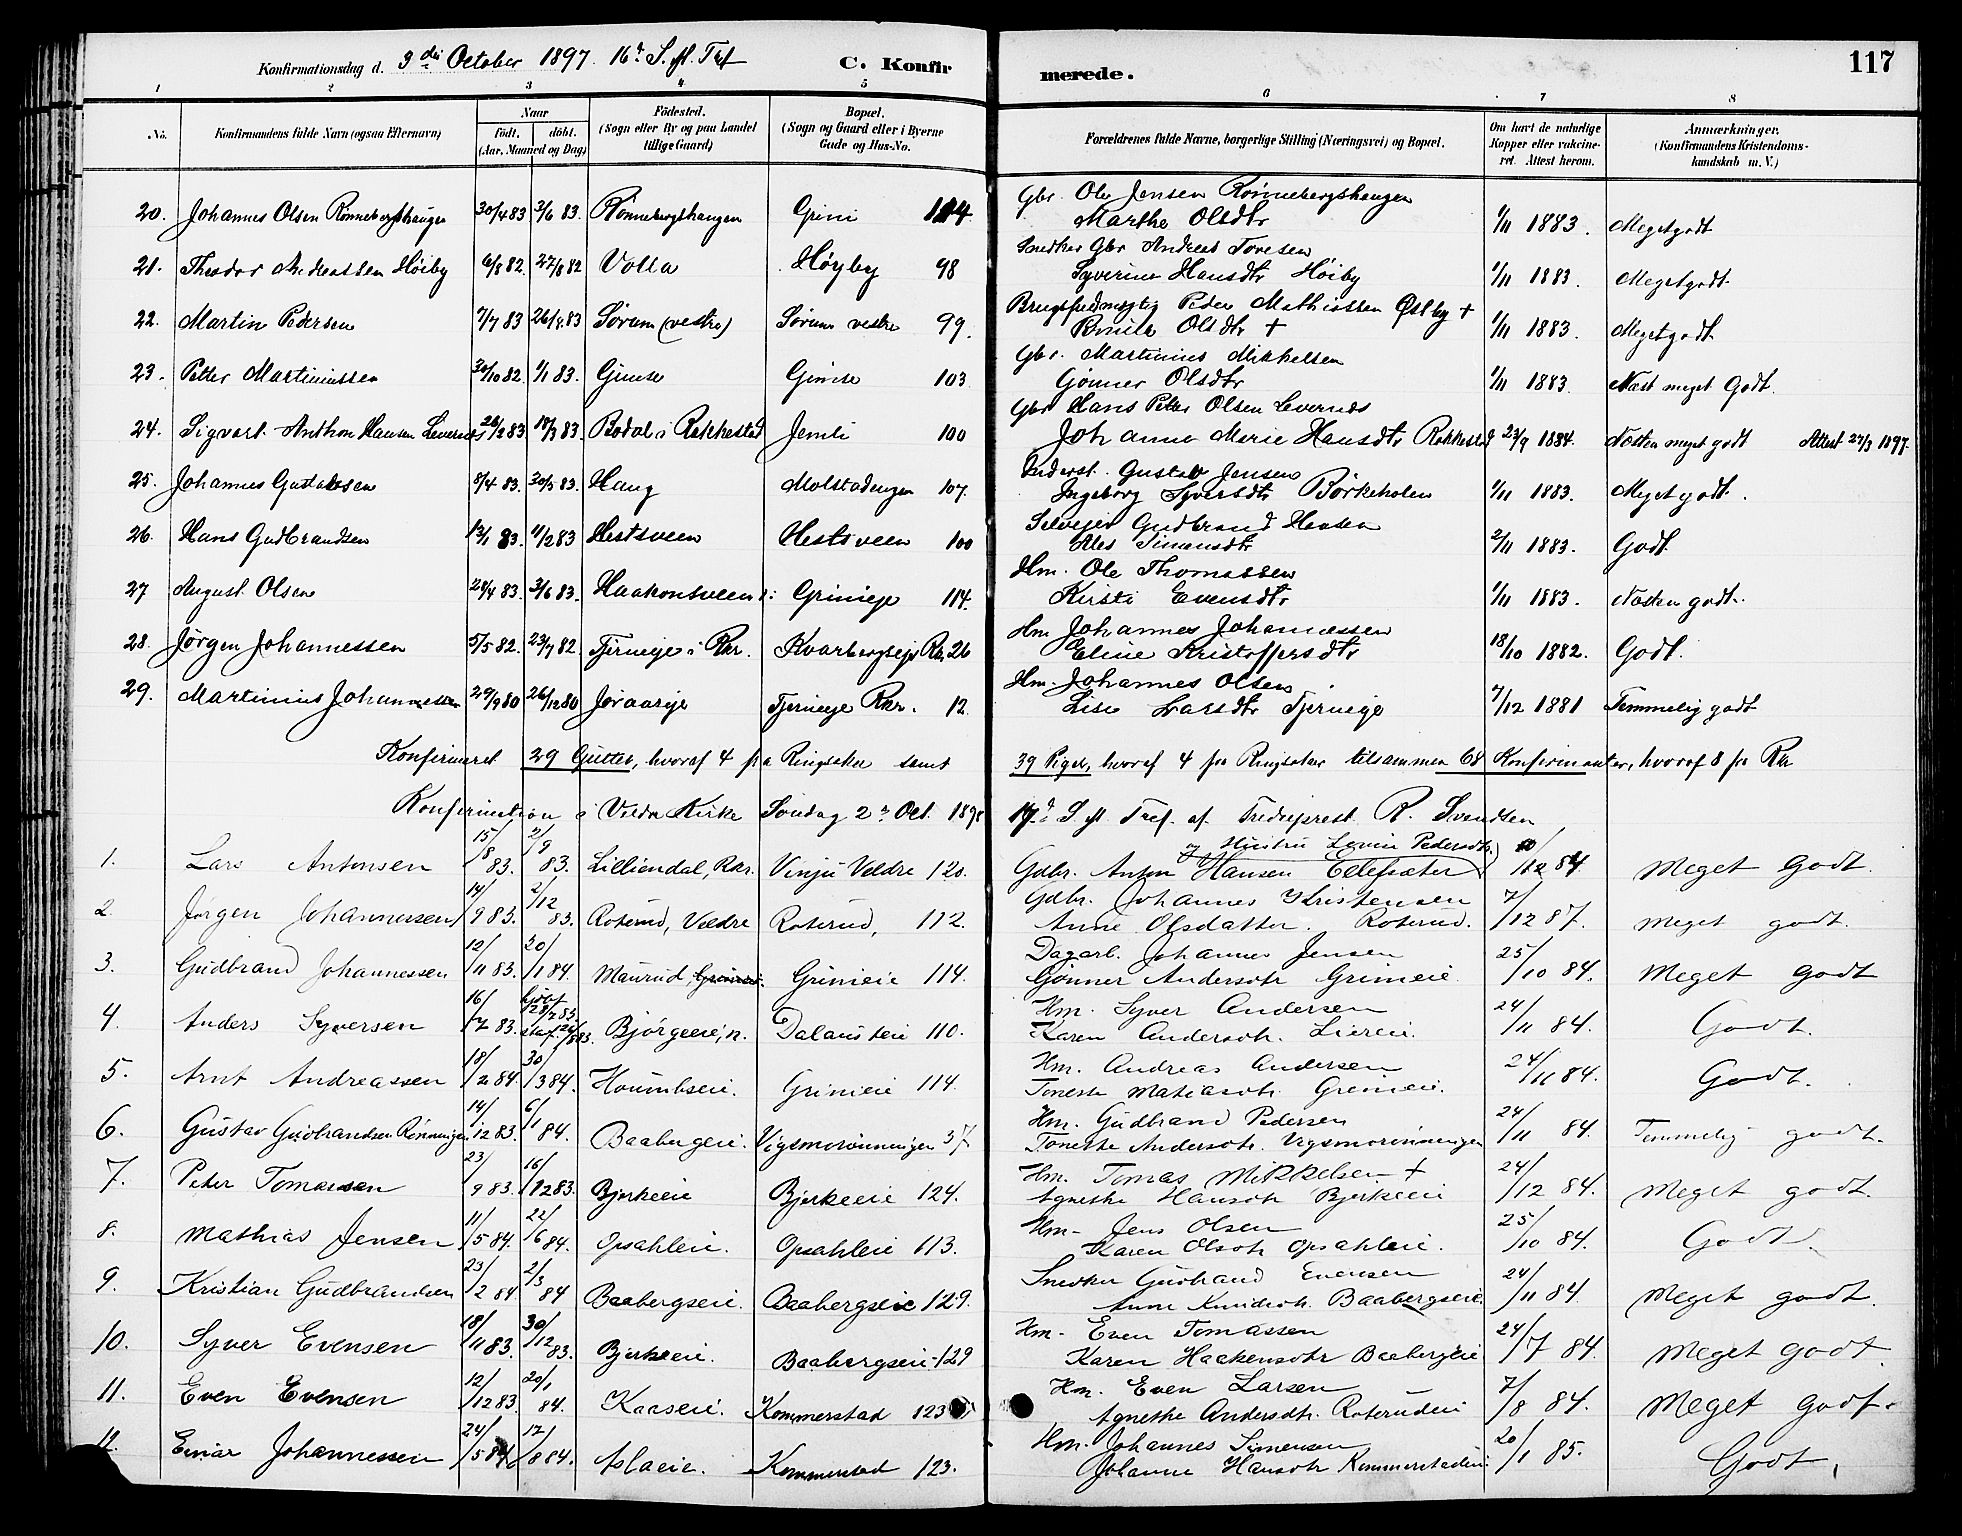 Konfirmationsdag d. 3die October 1897. 16d S. efl. Tref
C. Konfirmerede.
117
1 2 3 4 5 6 7 8
No. Konfirmandens fulde Navn (ogsaa Efternavn) Naar født. døbt. (Aar, Maaned og Dag) Fødested. (Sogn eller By og paa Landet tillige Gaard) Bopæl. (Sogn og Gaard eller i Byerne Gade og Hus-No. Forældrenes fulde Navne, borgerlige Stilling (Næringsvei) og Bopæl. Om havt de naturlige Kopper eller vakcineret. Attest herom. Anmærkninger. (Konfirmandens Kristendomskundskab m. V.)
20. Johannes Olsen Rønnebergshaugen 30/4 83 3/6 83. Rønnebergshaugen Grini 114. Gbr. Ole Jensen Rønnebergshaugen
Marthe Olsdtr 1/11 1883. Meget godt
21. Theodor Andreassen Høiby 6/8 82. 27/8 82 Volla Høyby 98 Snedker Gbr Andreas Toresen
Syverine Hansdtr Høiby 1/11 1883. Meget godt.
22. Martin Pedersen 7/7 83 26/8 83 Sørum (vestre) Sørum vestre 99. Peder Mathiassen Østby +
Olsdtr + 1/11 1883. Meget godt
23. Petter Martinussen 30/10 82. 1/1 83. Gimse Gimse 103 Gbr. Martinius Mikkelsen
Gønner Olsdtr 1/11 1883. Næst meget Godt.
24. Sigvart Anthon Hansen Levernds 26/2 83 18/3 83. Bodal i Rakkestad Jemli 100 Gbr Hans Petter Olsen Levernds
Johanne Marie Hansdtr Rakkestad 23/9 1884. Næsten meget godt Attest 27/3 1897.
25. Johannes Gustavsen 8/4 83. 20/5 83. Haug Molstadengen 107. Inderst. Gustav Jensen
Ingeborg Syversdtr Børkeholen 1/11 1883. Meget godt.
26. Hans Gudbrandsen 13/1 83. 11/2 83 Hestsveen Hestsveen 100 Selveier Gudbrand Hansen
Ales Simensdtr 2/11 1883. Godt.
27 August Olsen 24/4 83. 3/6 83. Haakonsveen Grinieje 114. Hm. Ole Thomassen
Kirsti Evensdtr 1/11 1883. Næsten godt.
28. Jørgen Johannessen 5/5 82. 23/7 82. Tjerneje i Rkr. Kvarbergseje Rkr. 26 Hm Johannes Johannessen
Eline Kristoffersdtr 18/10 1882. Godt.
29. Martinius Johannessen 29/9 80 26/12 80 Joraarje Tjerneje Rkr. 12. Hm. Johannes Olsen
Lise Larsdtr Tjerneje 7/12 1881 Temmelig godt
Konfirmeret 29 Gutter, hvoraf 4 fra Ringsaker samt 39 Piger, hvoraf 4 fra Ringsaker tilsammen 68 Konfirmanter, hvoraf 8 fra Rkr
Konfirmation i Veldre Kirke Søndag 2n Oct. 1898 17d S. efl. Tref. af Tredieprest R. Svendsen
1. Lars Antonsen 15/8 83. 2/9 83. Lilliendal, Rkr. Vinju Veldre 120. og Hustru Lovise Pedersdtr.
Gdbr. Anton Hansen 10/12 84. Meget Godt.
2. Jørgen Johannessen 14/9 83. 2/12 83. Roterud, Veldre Roterud, 112. Gdbr. Johannes Kristensen
Anne Olsdatter. Roterud. 7/12 87. Meget godt.
3. Gudbrand Johannessen 12/11 83. 20/1 84. Maurud, Grimeie 114. Dagarb. Johannes Jensen
Gønner Andersdtr Grimeie 25/10 84. Meget godt
4. Anders Syversen 16/7 83. Bjørgeeie, n. Dalansteie 110. Hm. Syver Andersen
Karen Andersdtr. Liereie. 24/11 84. Godt.
5. Arnt Andreassen 18/2 84. 30/3 84. Houmbseie. Grimeie 114. Hm. Andreas Andersen
Toneste Matiasdtr. Gremeie. 24/11 84. Godt.
6. Gustav Gudbrandsen Rønningen 14/12 83. 6/1 84. Baabergeie. Vigsmorønningen 37 Hm. Gudbrand Pedersen
Tonethe Andersdtr. Vegsmorønningen 24/11 84. Temmelig godt.
7. Peter Tomassen 23/9 83. 16/12 83. Bjerkeeie Bjerkeeie 124. Hm. Tomas Mikkelsen +
Agnethe Hansdtr Bjerkeeie 24/12 84. Meget godt.
8. Mathias Jensen 11/5 84. 22/6 84. Opsahleie. Opsahleie 113. Hm. Jens Olsen
Karen Olsdtr Opsahleie. 25/10 84. Godt.
9. Kristian Gudbrandsen 23/2 84 2/3 84 Baabergseie. Baabergseie 129. Snedker Gudbrand Evensen
Anne Knudsdtr. Baabergseie. 24/11 84 Meget godt.
10. Syver Evensen 18/11 83. 30/12 83. Bjerkeeie. Baabergseie 129 Hm. Even Tomassen
Karen Haakensdtr Baabergeie 24/7 84. Meget godt.
11. Even Evensen 12/12 83. 20/1 84. Kaaseie. Kommerstad 123 Hm. Even Larsen
Agnethe Andersdtr. Roterudeie 7/8 84. Meget godt.
12. Einar Johannessen 24/5 84 17/8 84. Aslaeie. Kommerstad 123. Hm. Johannes Simensen
Johanne Hansdtr Kommerstadeie 20/1 85. Godt.